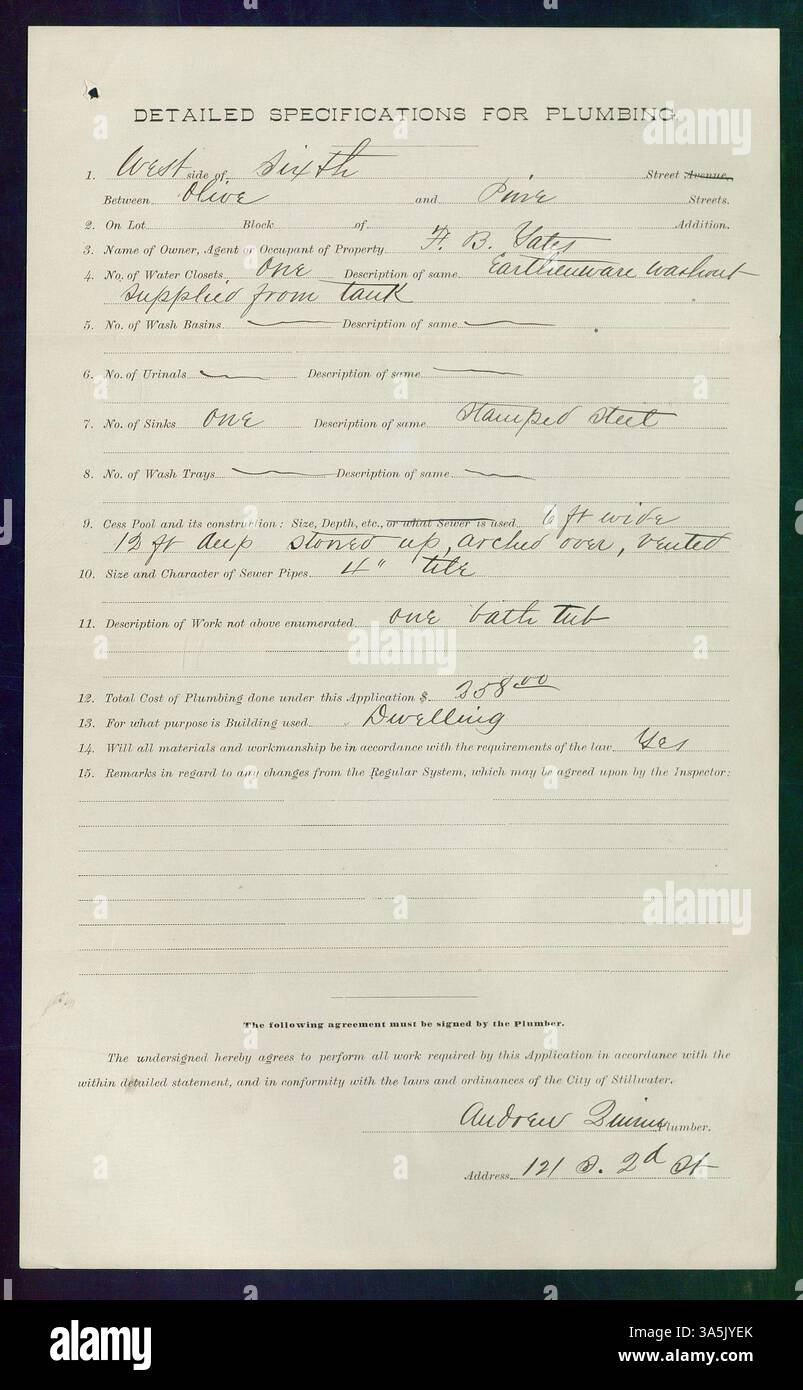 DETAILED SPECIFICATIONS FOR PLUMBING.
1. West side of Sixth Street Avenue,
Between Olive and Pine Streets.
2. On Lot Block of Addition.
3. Name of Owner, Agent or Occupant of Property F. B. Yates
4. No. of Water Closets One Description of same Earthenware washout
supplied from tank
5. No. of Wash Basins Description of same
6. No. of Urinals Description of same
7. No. of Sinks One Description of same Stamped Steel
8. No. of Wash Trays Description of same
9. Cess Pool and its construction: Size, Depth, etc., or what Sewer is used 6 ft wide
12 ft deep stoned up, arched over, vented
10. Size and Character of Sewer Pipes 4" tile
11. Description of Work not above enumerated one bath tub
12. Total Cost of Plumbing done under this Application $ 258.00
13. For what purpose is Building used Dwelling
14. Will all materials and workmanship be in accordance with the requirements of the law Yes
15. Remarks in regard to any changes from the Regular System, which may be agreed upon by the Inspector:
The following agreement must be signed by the Plumber.
The undersigned hereby agrees to perform all work required by this Application in accordance with the
within detailed statement, and in conformity with the laws and ordinances of the City of Stillwater.
Andrew Plumber.
Address 121 S. 2d St
alamy
Image ID: 3A5JYEK
www.alamy.com